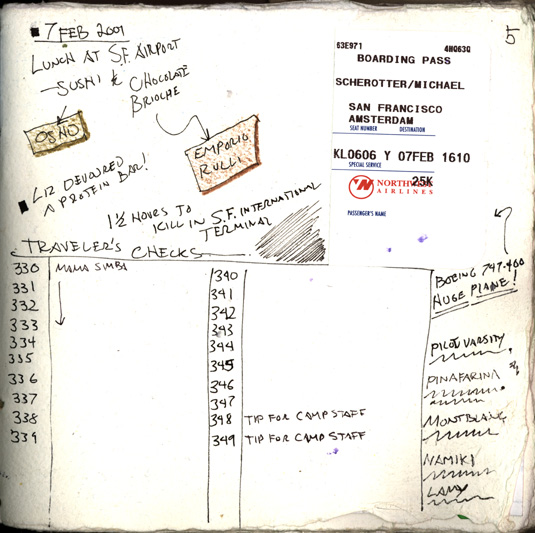 7 FEB 2001
5
LUNCH AT S.F. AIRPORT
- SUSHI & CHOCOLATE
BRIOCHE
OSHO
EMPORIO
RULLI
LIZ DEVOURED
A PROTEIN BAR!
1½ HOURS TO
KILL IN S.F. INTERNATIONAL
TERMINAL
63E971 4HQ63Q
BOARDING PASS
SCHEROTTER/MICHAEL
SAN FRANCISCO
AMSTERDAM
SEAT NUMBER DESTINATION
KL0606 Y 07FEB 1610
SPECIAL SERVICE
25K
NORTHWEST
AIRLINES
PASSENGER'S NAME
BOEING 747-400
HUGE PLANE!
TRAVELER'S CHECKS
330 MAMA SIMBA
331
332
333
334
335
336
337
338
339
340
341
342
343
344
345
346
347
348 TIP FOR CAMP STAFF
349 TIP FOR CAMP STAFF
PILOT VARSITY
PINAFARINA
MONTBLANC
NAMIKI
LAMY